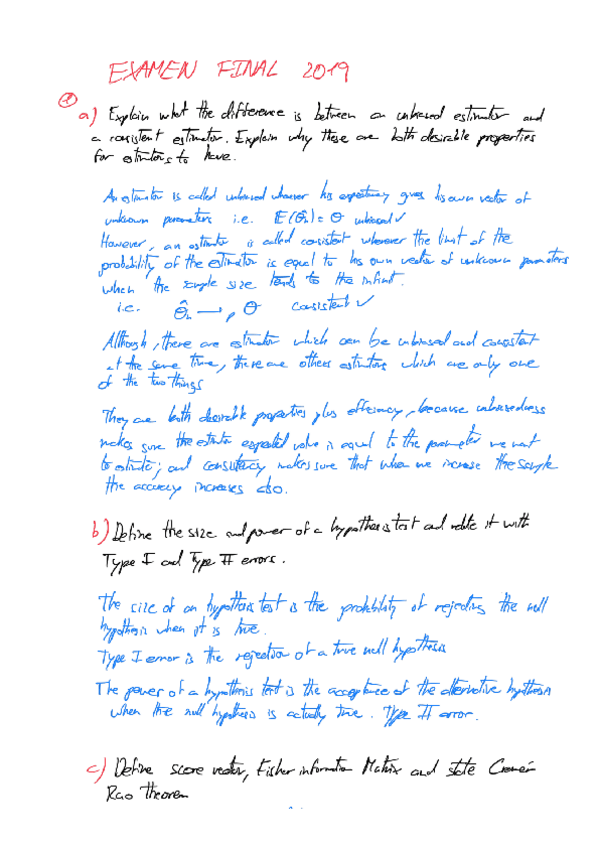 EXAMEN FINAL 2019
① a) Explain what the difference is between an unbiased estimator and
a consistent estimator. Explain why these are both desirable properties
for estimators to have.
An estimator is called unbiased whenever his expectancy gives his own vector of
unknown parameters i.e. E(θ̂n) = θ unbiased ✓
However, an estimator is called consistent whenever the limit of the
probability of the estimator is equal to his own vector of unknown parameters
when the sample size tends to the infinit.
i.e. θ̂n →p θ consistent ✓
Although, there are estimator which can be unbiased and consistent
at the same time, there are others estimators which are only one
of the two things
They are both desirable properties plus efficiency, because unbiasedness
makes sure the estimator expected value is equal to the parameter we want
to estimate; and consistency makes sure that when we increase the sample
the accuracy increases also.
b) Define the size and power of a hypothesis test and relate it with
Type I and Type II errors.
The size of an hypothesis test is the probability of rejecting the null
hypothesis when it is true.
Type I error is the rejection of a true null hypothesis
The power of a hypothesis test is the acceptance of the alternative hypothesis
when the null hypothesis is actually true. Type II error.
c) Define score vector, Fisher information Matrix and state Cramér
Rao theorem